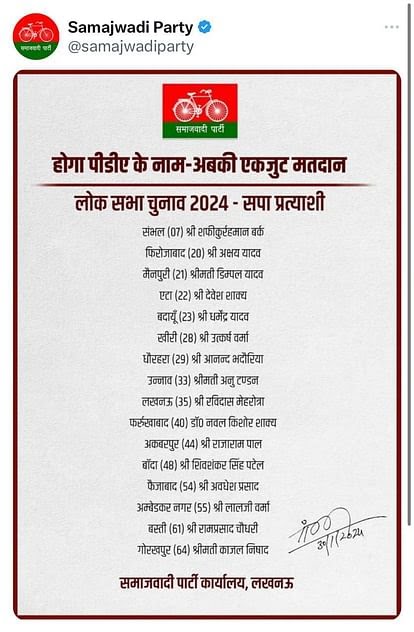 Samajwadi Party
@samajwadiparty
समाजवादी पार्टी
समाजवादी पार्टी
होगा पीडीए के नाम-अबकी एकजुट मतदान
लोक सभा चुनाव 2024 - सपा प्रत्याशी
संभल (07) श्री शफीकुर्रहमान बर्क
फिरोजाबाद (20) श्री अक्षय यादव
मैनपुरी (21) श्रीमती डिम्पल यादव
एटा (22) श्री देवेश शाक्य
बदायूँ (23) श्री धर्मेंद्र यादव
खीरी (28) श्री उत्कर्ष वर्मा
धौरहरा (29) श्री आनन्द भदौरिया
उन्नाव (33) श्रीमती अनु टण्डन
लखनऊ (35) श्री रविदास मेहरोत्रा
फर्रुखाबाद (40) डॉ0 नवल किशोर शाक्य
अकबरपुर (44) श्री राजाराम पाल
बाँदा (48) श्री शिवशंकर सिंह पटेल
फैजाबाद (54) श्री अवधेश प्रसाद
अम्बेडकर नगर (55) श्री लालजी वर्मा
बस्ती (61) श्री रामप्रसाद चौधरी
गोरखपुर (64) श्रीमती काजल निषाद
30/1/2024
समाजवादी पार्टी कार्यालय, लखनऊ